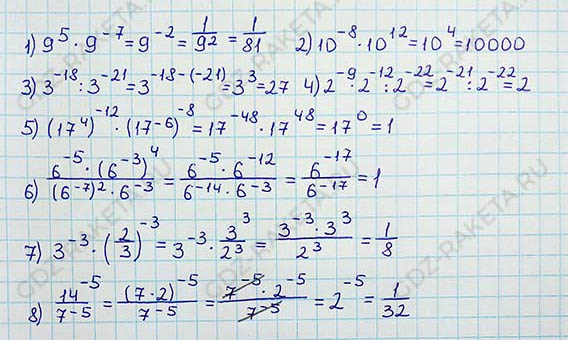 1) 9⁵ · 9⁻⁷ = 9⁻² = 1/9² = 1/81 2) 10⁻⁸ · 10¹² = 10⁴ = 10000
3) 3⁻¹⁸ : 3⁻²¹ = 3⁻¹⁸⁻⁽⁻²¹⁾ = 3³ = 27 4) 2⁻⁹ · 2⁻¹² : 2⁻²² = 2⁻²¹ : 2⁻²² = 2
5) (17⁴)⁻¹² · (17⁻⁶)⁻⁸ = 17⁻⁴⁸ · 17⁴⁸ = 17⁰ = 1
6) (6⁻⁵ · (6⁻³)⁴)/((6⁻⁷)² · 6⁻³) = (6⁻⁵ · 6⁻¹²)/(6⁻¹⁴ · 6⁻³) = 6⁻¹⁷/6⁻¹⁷ = 1
7) 3⁻³ · (2/3)⁻³ = 3⁻³ · 3³/2³ = (3⁻³ · 3³)/2³ = 1/8
8) 14⁻⁵/7⁻⁵ = (7·2)⁻⁵/7⁻⁵ = (7⁻⁵ · 2⁻⁵)/7⁻⁵ = 2⁻⁵ = 1/32
GDZ-RAKETA.RU